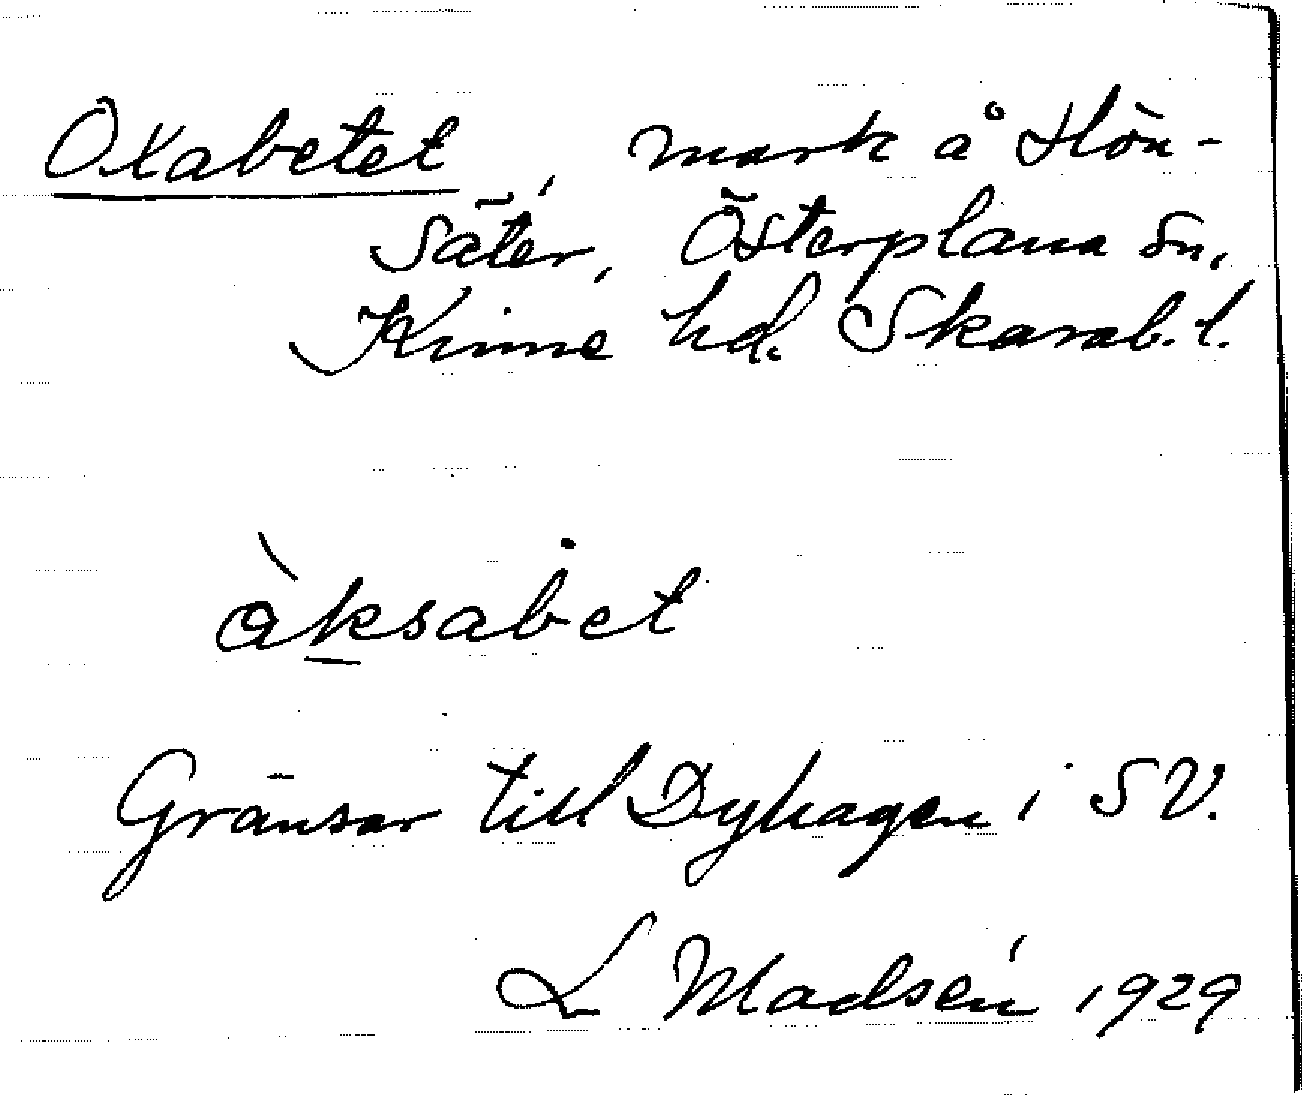 Oxabetet, mark å Hön-
säter, Österplana sn,
Kinne hd. Skarab. l.
àksabet
Gränsar till Dyhagen i SV.
L Madsén 1929